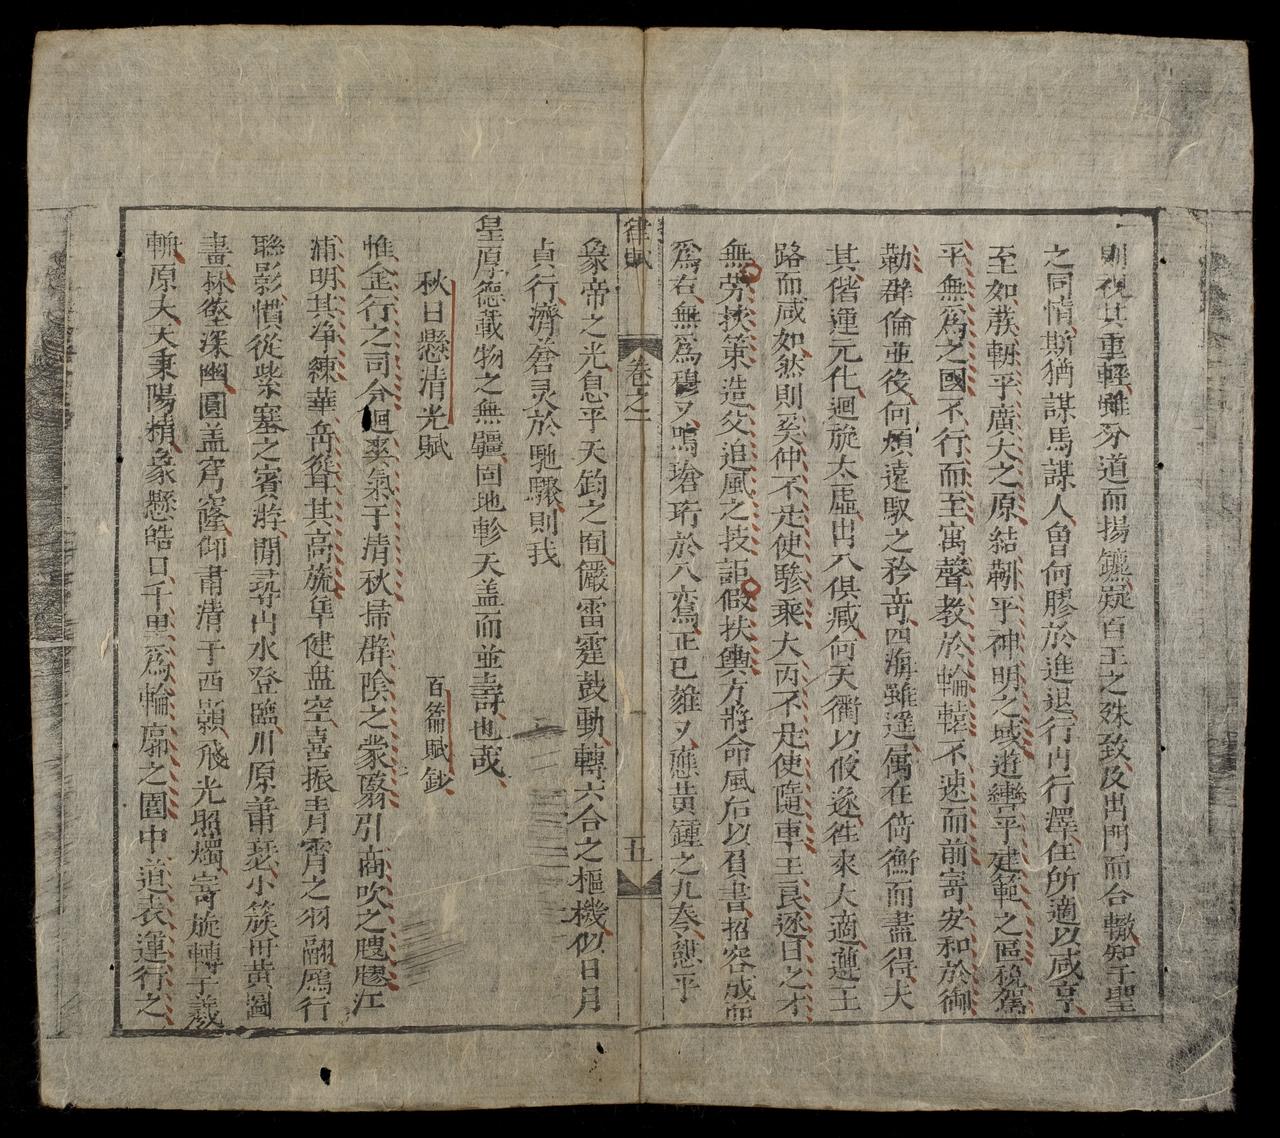 則視其重輕雖分道而揚鑣疑百王之殊致及出門而合轍知千聖
之同情斯猶謀馬謀人曾何膠於進退行冉行澤任所適以咸亨
至如蔟輧乎廣大之原結靷乎神明之域遊轡乎建範之區稅駕
乎無爲之國不行而至寓聲教於輪轅不速而前寄安和於御
勒群倫並役何煩遠馭之矜奇四海雖遥属在倚衡而盡得夫
其偕運元化迴旋太虛出入俱臧何天衢以攸遂徃來大適遵王
路而咸如然則奚仲不足使驂乘大丙不足使隨車王良逐日之才
無勞挾策造父追風之技詎假扶輿方將命風后以負書招容成而
爲右無爲穆乂鳴瑲珩於八鸞正己雍乂應黄鍾之九奏懇乎
律賦
卷之一
五
象帝之光息乎天鈞之囿儼雷霆鼓動轉六合之樞機似日月
貞行濟蒼灵於馳驟則我
皇厚德載物之無疆固地軫天盖而並壽也哉
秋日懸清光賦
百篇賦鈔
惟金行之司令迴爽氣于清秋掃群陰之蒙翳引商吹之飂飀江
浦明其净練華岳聳其高旒隼健盤空喜振青霄之羽翮鴈行
聯影慣從紫塞之賓游閒尋山水登臨川原蕭瑟小簇冊黄圖
書林壑深幽圓盖穹窿御肅清于西顥飛光照燭寄旋轉于羲
輪原夫天秉陽精象懸皓口千里爲輪廓之圍中道表運行之